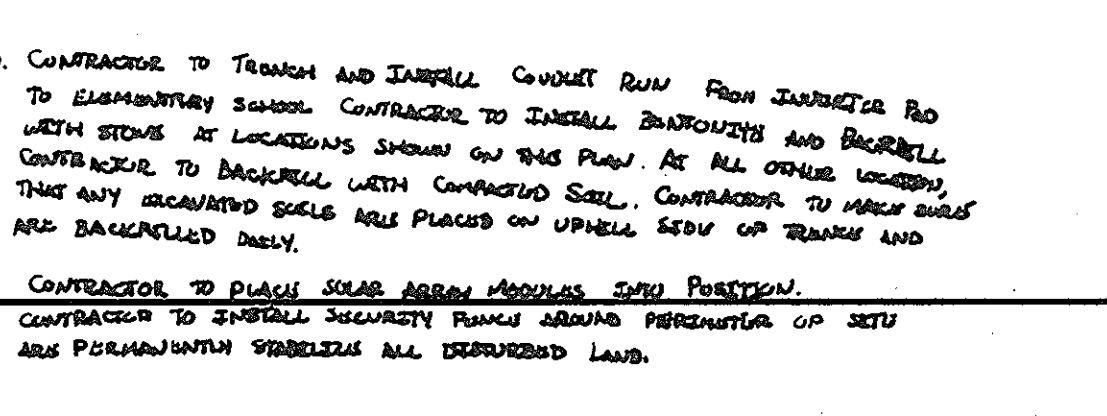 . CONTRACTOR TO TRENCH AND INSTALL CONDUIT RUN FROM INVERTER PAD
TO ELEMENTARY SCHOOL CONTRACTOR TO INSTALL BENTONITE AND BACKFILL
WITH STONE AT LOCATIONS SHOWN ON THIS PLAN. AT ALL OTHER LOCATION,
CONTRACTOR TO BACKFILL WITH COMPACTED SOIL. CONTRACTOR TO MAKE SURE
THAT ANY EXCAVATED SOILS ARE PLACED ON UPHILL SIDE OF TRENCH AND
ARE BACKFILLED DAILY.
CONTRACTOR TO PLACE SOLAR ARRAY MODULES INTO POSITION.
CONTRACTOR TO INSTALL SECURITY FENCE AROUND PERIMETER OF SITE
ARE PERMANENTLY STABILIZE ALL DISTURBED LAND.